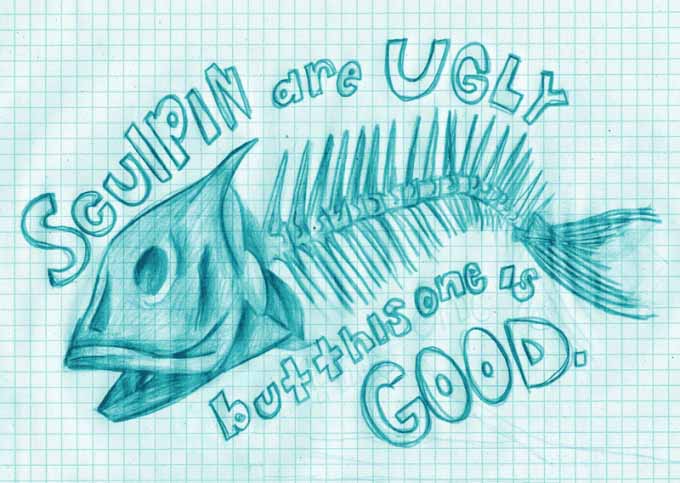 SculpIN are UGLY
but this one is
GOOD.